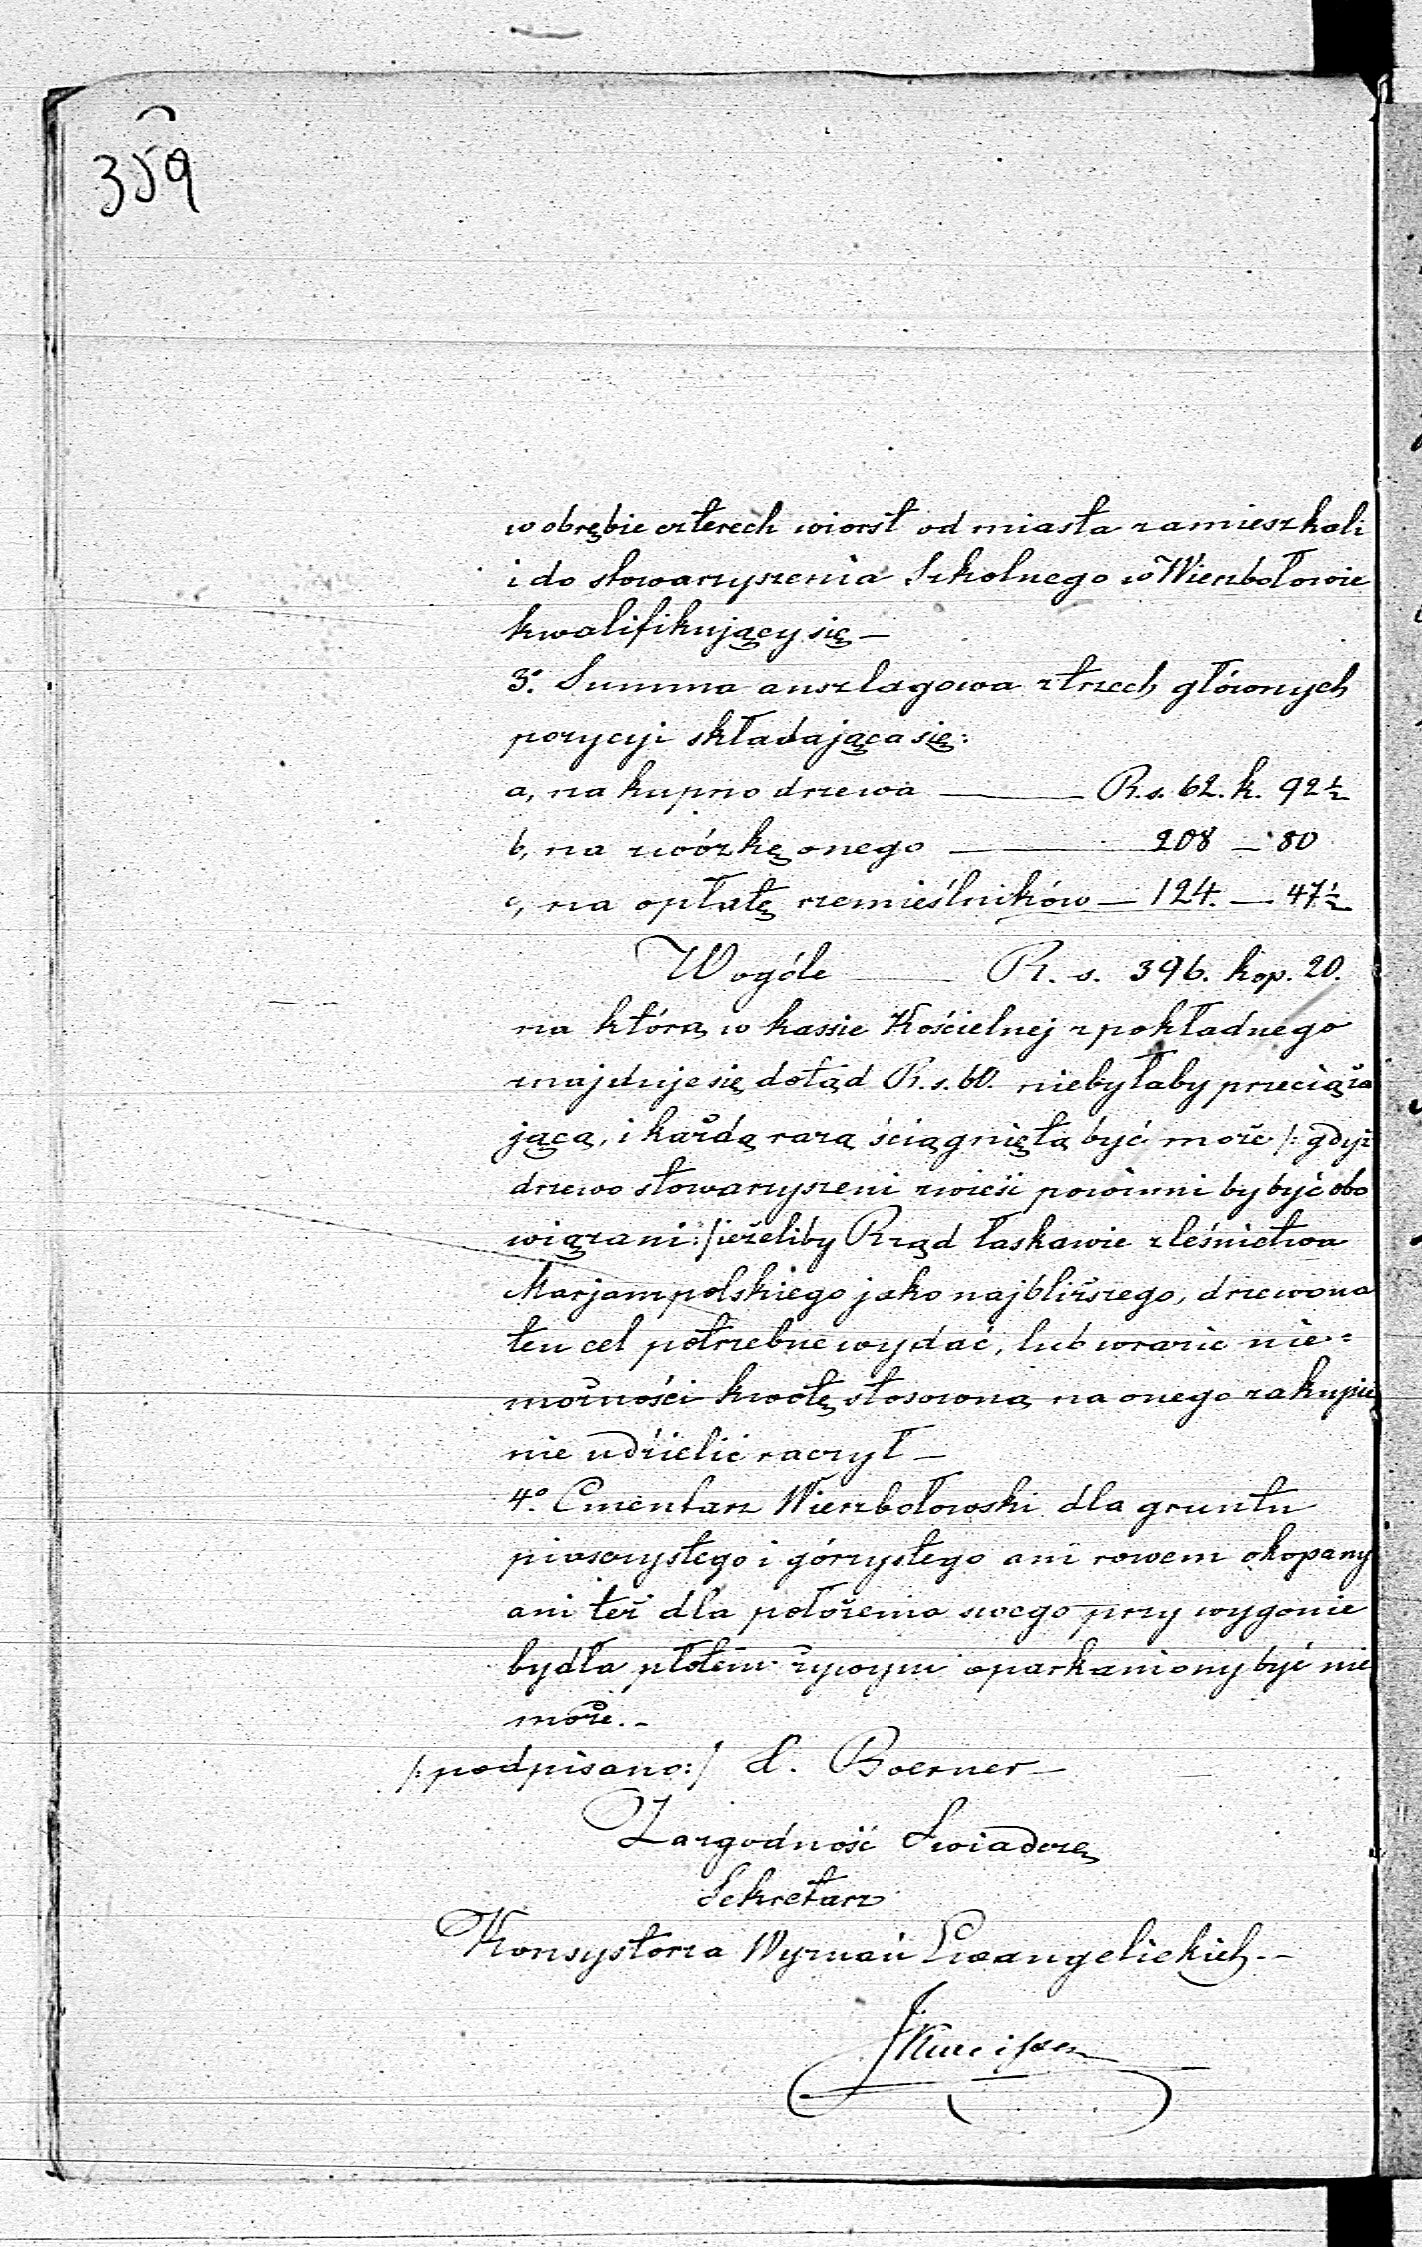 359
w obrębie czterech wiorst od miasta zamieszkali
i do stowarzyszenia Szkolnego w Wierzbołowie
kwalifikujący się —
3º. Summa anszlagowa z trzech głównych
pozycyi składająca się:
a, na kupno drzewa — R.s. 62. k. 92½
b, na zwózkę onego — 208 — 80
c, na opłatę rzemieślników — 124. — 47½
W ogóle — R. s. 396. kop. 20.
na którą w kassie Kościelnej z pokładnego
znajduje się dotąd R. s. 60. niebyłaby przeciąża
jącą, i każdą razą ściągniętą być może /: gdyż
drzewo stowarzyszeni zwieść powinni by być obo
wiązani :/ jeżeliby Rząd łaskawie z leśnictwa
Marjampolskiego jako najbliższego, drzewo na
ten cel potrzebne wydać, lub w razie nie=
możności kwotę stosowną na onego zakupie
nie udzielić raczył —
4º. Cmentarz Wierzbołowski dla gruntu
piasczystego i górzystego ani rowem okopany
ani też dla położenia swego przy wygonie
bydła płotem żywym oparkaniony być nie
może. —
/: podpisano :/ H. Boerner —
Za zgodność Swiadczę
Sekretarz
Konsystorza Wyznań Ewangelickich. —